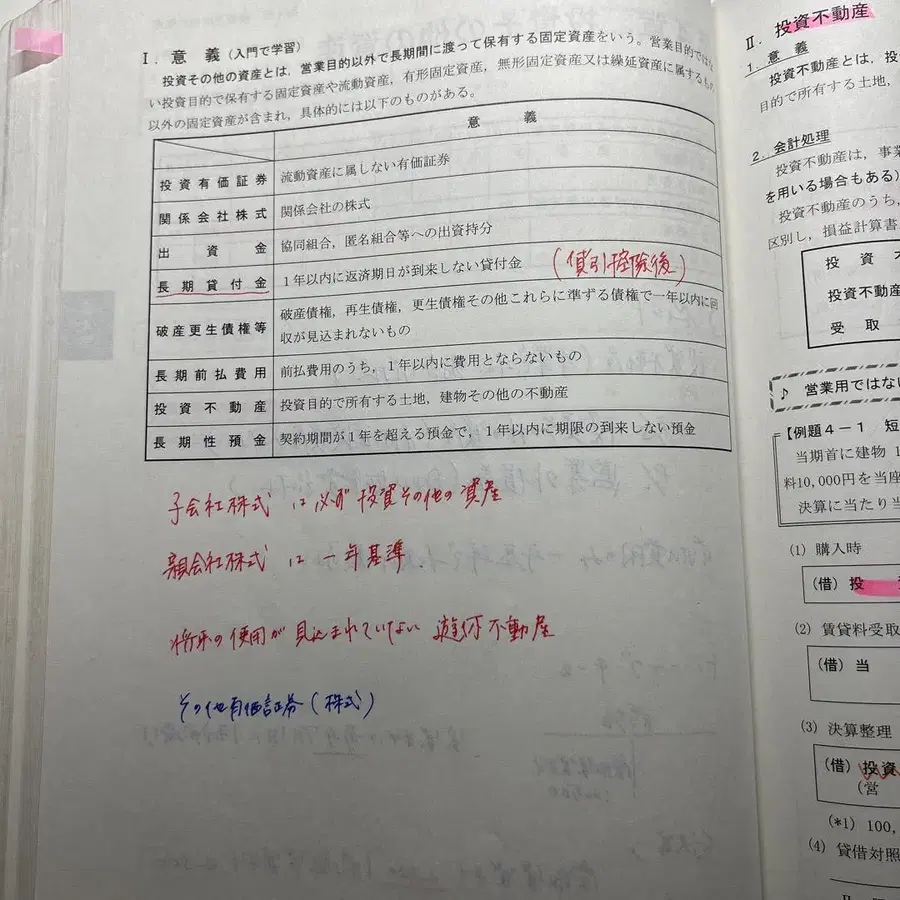 Ⅰ．意 義（入門で学習）
投資その他の資産とは，営業目的以外で長期間に渡って保有する固定資産をいう。営業目的ではな
い投資目的で保有する固定資産や流動資産，有形固定資産，無形固定資産又は繰延資産に属するもの
以外の固定資産が含まれ，具体的には以下のものがある。
意 義
投資有価証券 流動資産に属しない有価証券
関係会社株式 関係会社の株式
出資金 協同組合，匿名組合等への出資持分
長期貸付金 １年以内に返済期日が到来しない貸付金 (貸引控除後)
破産更生債権等 破産債権，再生債権，更生債権その他これらに準ずる債権で一年以内に回
収が見込まれないもの
長期前払費用 前払費用のうち，１年以内に費用とならないもの
投資不動産 投資目的で所有する土地，建物その他の不動産
長期性預金 契約期間が１年を超える預金で，１年以内に期限の到来しない預金
子会社株式 は必ず投資その他の資産
親会社株式 は 一年基準.
将来の使用が見込まれていない 遊休不動産
その他有価証券(株式)
Ⅱ．投資不動産
1．意 義
投資不動産とは，投
目的で所有する土地，
2．会計処理
投資不動産は，事
を用いる場合もある)
投資不動産のうち，
区別し，損益計算書
投 資
投資不動産
受 取
♪ 営業用ではな
【例題４－１ 短
当期首に建物 1
料10,000円を当座
決算に当たり当
(1) 購入時
(借) 投
(2) 賃貸料受取
(借) 当
(3) 決算整理
(借) 投資
(営
(*1) 100,
(4) 貸借対照